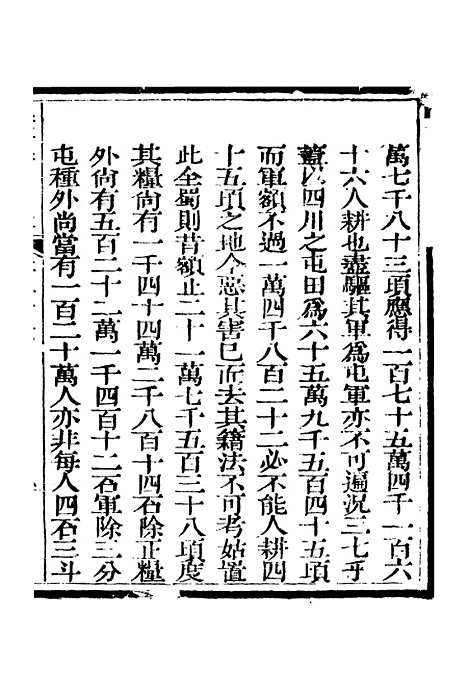 萬七千八十三頃應得一百七十五萬四千一百六
十六人耕也盡驅其軍爲屯軍亦不可遍況三七乎
蓋以四川之屯田爲六十五萬九千五百四十五頃
而軍額不過一萬四千八百二十二必不能人耕四
十五頃之地今惡其害已而去其籍法不可考姑置
此全蜀則昔額止二十一萬七千五百三十八頃度
其糧尚有一千四十四萬二千八百十四石除正糧
外尚有五百二十二萬一千四百十二石軍除三分
屯種外尚當有一百二十萬人亦非每人四石三斗